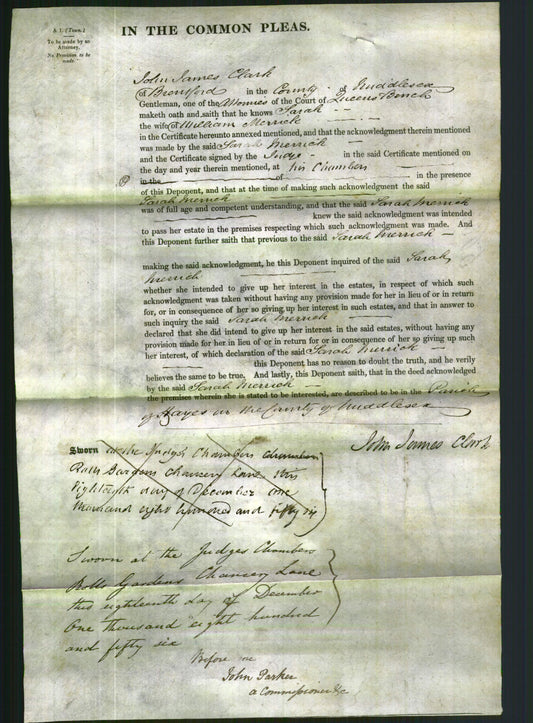 S. 1. (Town.)
To be made by an
Attorney.
No Provision to be
made.
IN THE COMMON PLEAS.
John James Clark
of Brentford in the County of Middlesex
Gentleman, one of the Attornies of the Court of Queens Bench
maketh oath and saith that he knows Sarah
the wife of William Merrick
in the Certificate hereunto annexed mentioned, and that the acknowledgment therein mentioned
was made by the said Sarah Merrick
and the Certificate signed by the Judge in the said Certificate mentioned on
the day and year therein mentioned, at his Chambers
in the of in the presence
of this Deponent, and that at the time of making such acknowledgment the said
Sarah Merrick
was of full age and competent understanding, and that the said Sarah Merrick
knew the said acknowledgment was intended
to pass her estate in the premises respecting which such acknowledgment was made. And
this Deponent further saith that previous to the said Sarah Merrick
making the said acknowledgment, he this Deponent inquired of the said Sarah
Merrick
whether she intended to give up her interest in the estates, in respect of which such
acknowledgment was taken without having any provision made for her in lieu of or in return
for, or in consequence of her so giving up her interest in such estates, and that in answer to
such inquiry the said Sarah Merrick
declared that she did intend to give up her interest in the said estates, without having any
provision made for her in lieu of or in return for or in consequence of her so giving up such
her interest, of which declaration of the said Sarah Merrick
this Deponent has no reason to doubt the truth, and he verily
believes the same to be true. And lastly, this Deponent saith, that in the deed acknowledged
by the said Sarah Merrick
the premises wherein she is stated to be interested, are described to be in the Parish
of Hayes in the County of Middlesex
John James Clark
Sworn at the Judges Chambers
Rolls Gardens Chancery Lane this
eighteenth day of December one
thousand eight hundred and fifty six
Sworn at the Judges Chambers
Rolls Gardens Chancery Lane
this eighteenth day of December
One thousand eight hundred
and fifty six
Before me
John Parker
a Commissioner &c